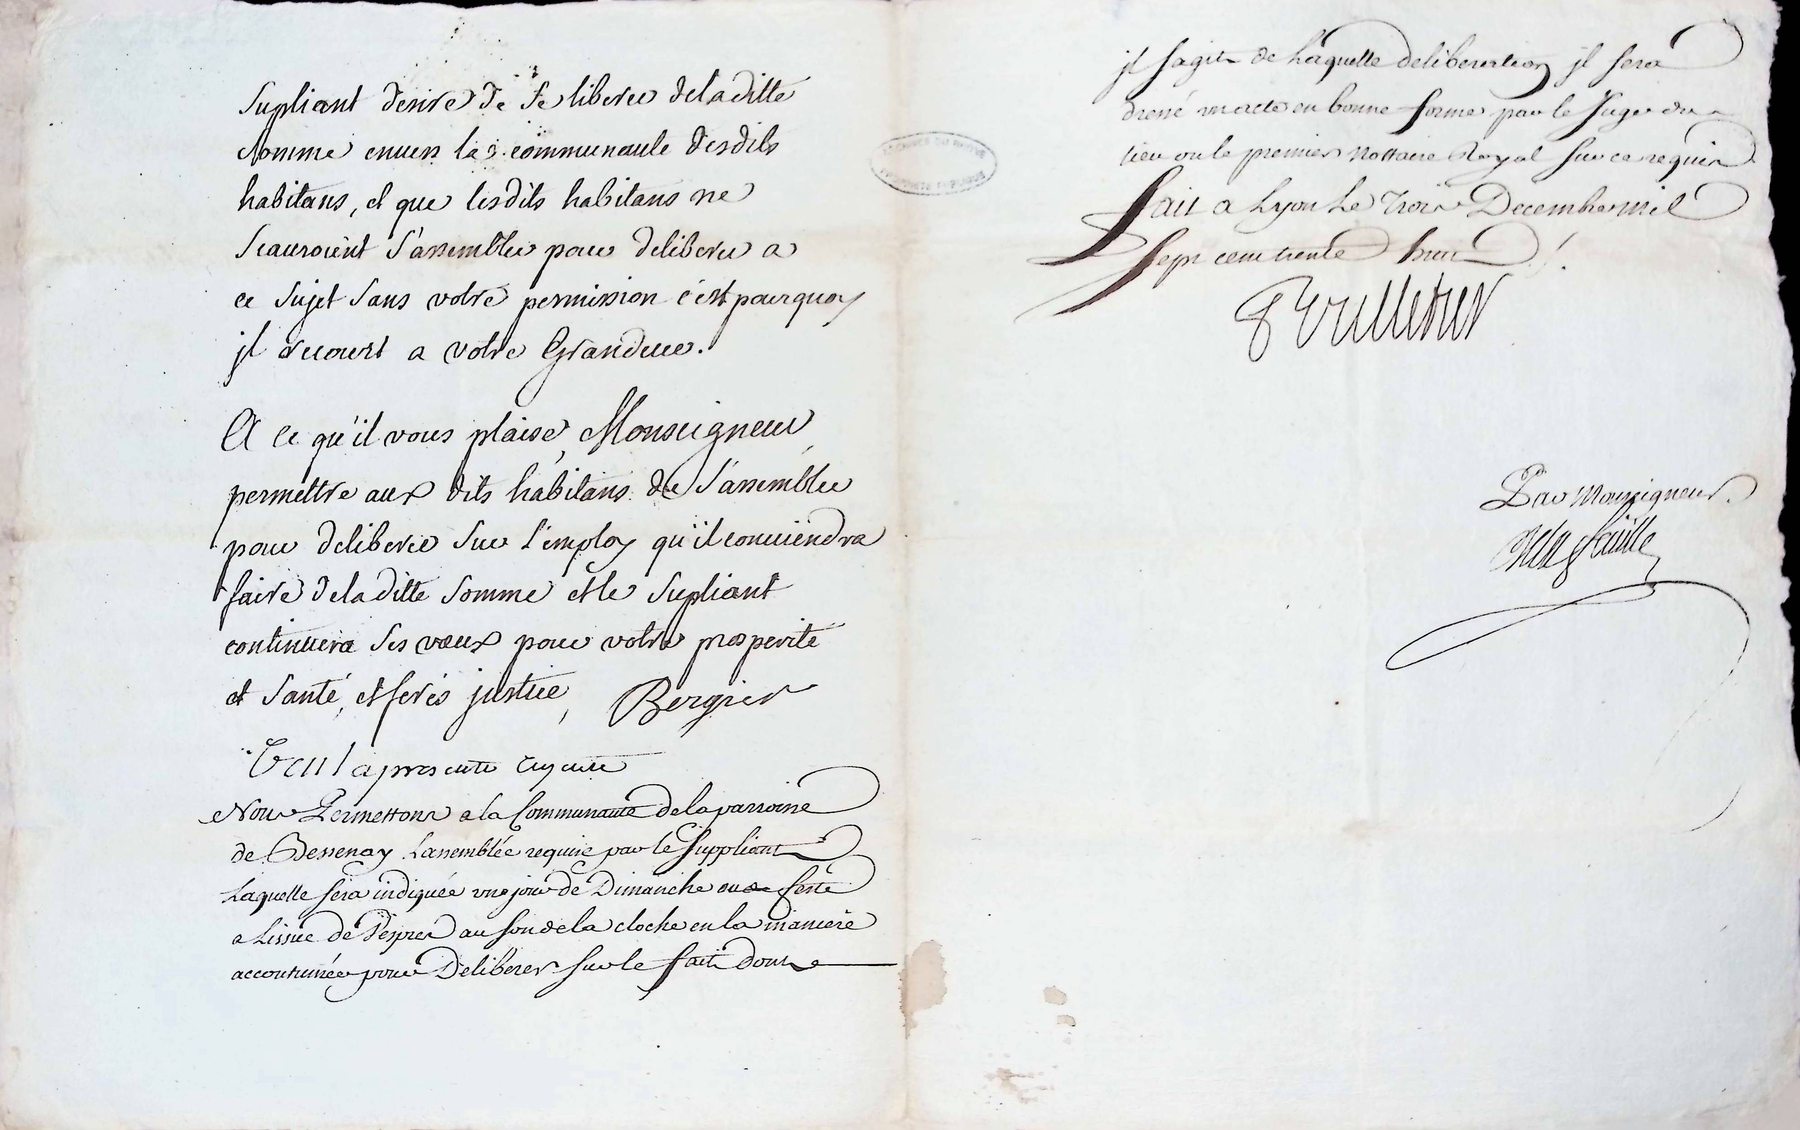 Supliant desire de se liberer deladitte
somme envers la communauté desdits
habitans, et que lesdits habitans ne
scauroient s'assembler pour deliberer a
ce sujet sans votre permission c'est pourquoy
jl recourt a votre Grandeur.
A ce qu'il vous plaise, Monseigneur
permettre aux dits habitans de s'assembler
pour deliberer sur l'employ qu'il conviendra
faire deladitte somme et le supliant
continuera ses vœux pour votre prosperité
et santé, et ferés justice, Bergier
Veu la presente requete
Nous Permettons a la Communauté de la parroisse
de Bessenay Lassemblée requise par le Suppliant
Laquelle sera indiquée un jour de Dimanche ou de feste
a Lissue de Vespres au son de la cloche en la maniere
accoutumée pour Deliberer sur le fait dont
jl sagit de Laquelle deliberation jl sera
dressé un acte en bonne forme par le Juge du
lieu ou le premier Nottaire Royal sur ce requis
fait a Lyon Le Trois Decembre mil
sept cent trente huit
Par Monseigneur